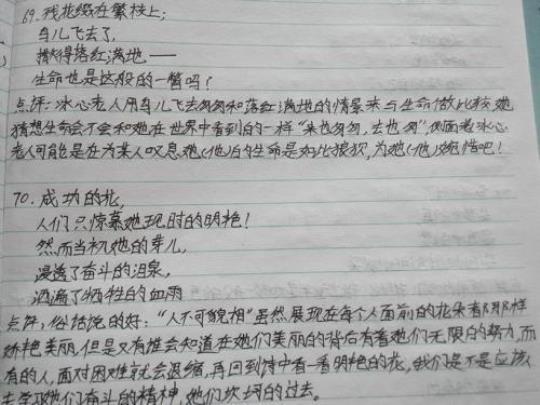 69. 残花缀在繁枝上；
鸟儿飞去了，
撒得落红满地——
生命也是这般的一瞥吗？
点评：冰心老人用鸟儿飞去匆匆和落红满地的情景来与生命做比较，她
猜想生命会不会和她在世界中看到的一样“来也匆匆，去也匆”，侧面着冰心
老人可能是在为某人叹息她（他）的生命是如此狼狈，为她（他）惋惜吧！
70. 成功的花，
人们只惊慕她现时的明艳！
然而当初她的芽儿，
浸透了奋斗的泪泉，
洒遍了牺牲的血雨
点评：俗话说的好：“人不可貌相”虽然展现在每个人面前的花朵都那样
娇艳美丽，但是又有谁会知道在她们美丽的背后有着她们无限的努力，而
有的人，面对困难就会退缩，再回到诗中看一看明艳的花，我们是不是应该
去学习她们奋斗的精神，她们坎坷的过去。